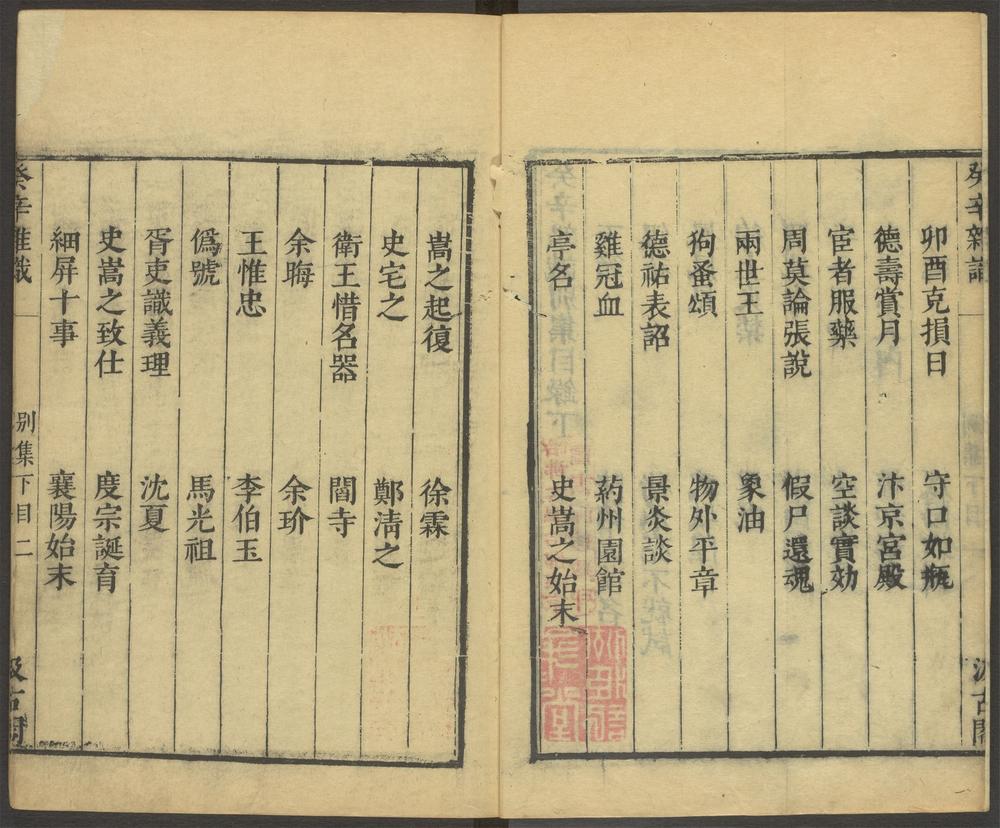 癸辛雜識
卯酉克損日　守口如瓶
德壽賞月　汴京宮殿
宦者服藥　空談實効
周莫論張說　假尸還魂
兩世王　象油
狗蚤頌　物外平章
德祐表詔　景炎談
雞冠血　葯州園館
亭名　史嵩之始末
汲古閣
嵩之起復　徐霖
史宅之　鄭清之
衛王惜名器　閻寺
余晦　余玠
王惟忠　李伯玉
僞號　馬光祖
胥吏識義理　沈夏
史嵩之致仕　度宗誕育
細屏十事　襄陽始末
癸辛雜識
別集下目　二
汲古閣